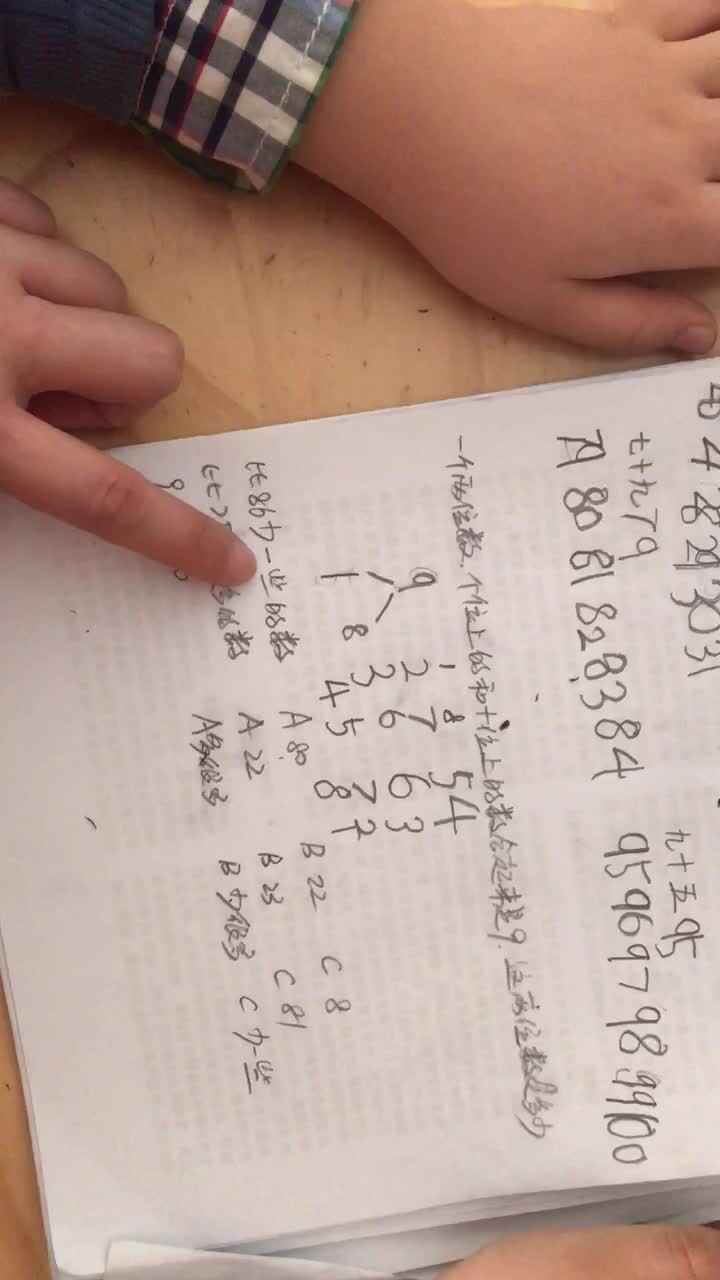 29 30 31
七十九 79 九十五 95
79 80 81 82 83 84 95 96 97 98 99 100
一个两位数、个位上的和十位上的数合起来是9.这两位数是多少
1 8 5 4
9 2 7 6 3
3 6 7 2
1 8 4 5 8
比86少一些的数 A 80. B 22 C 8
的数 A 22 B 23 C 81
A多很多 B 少很多 C 少一些